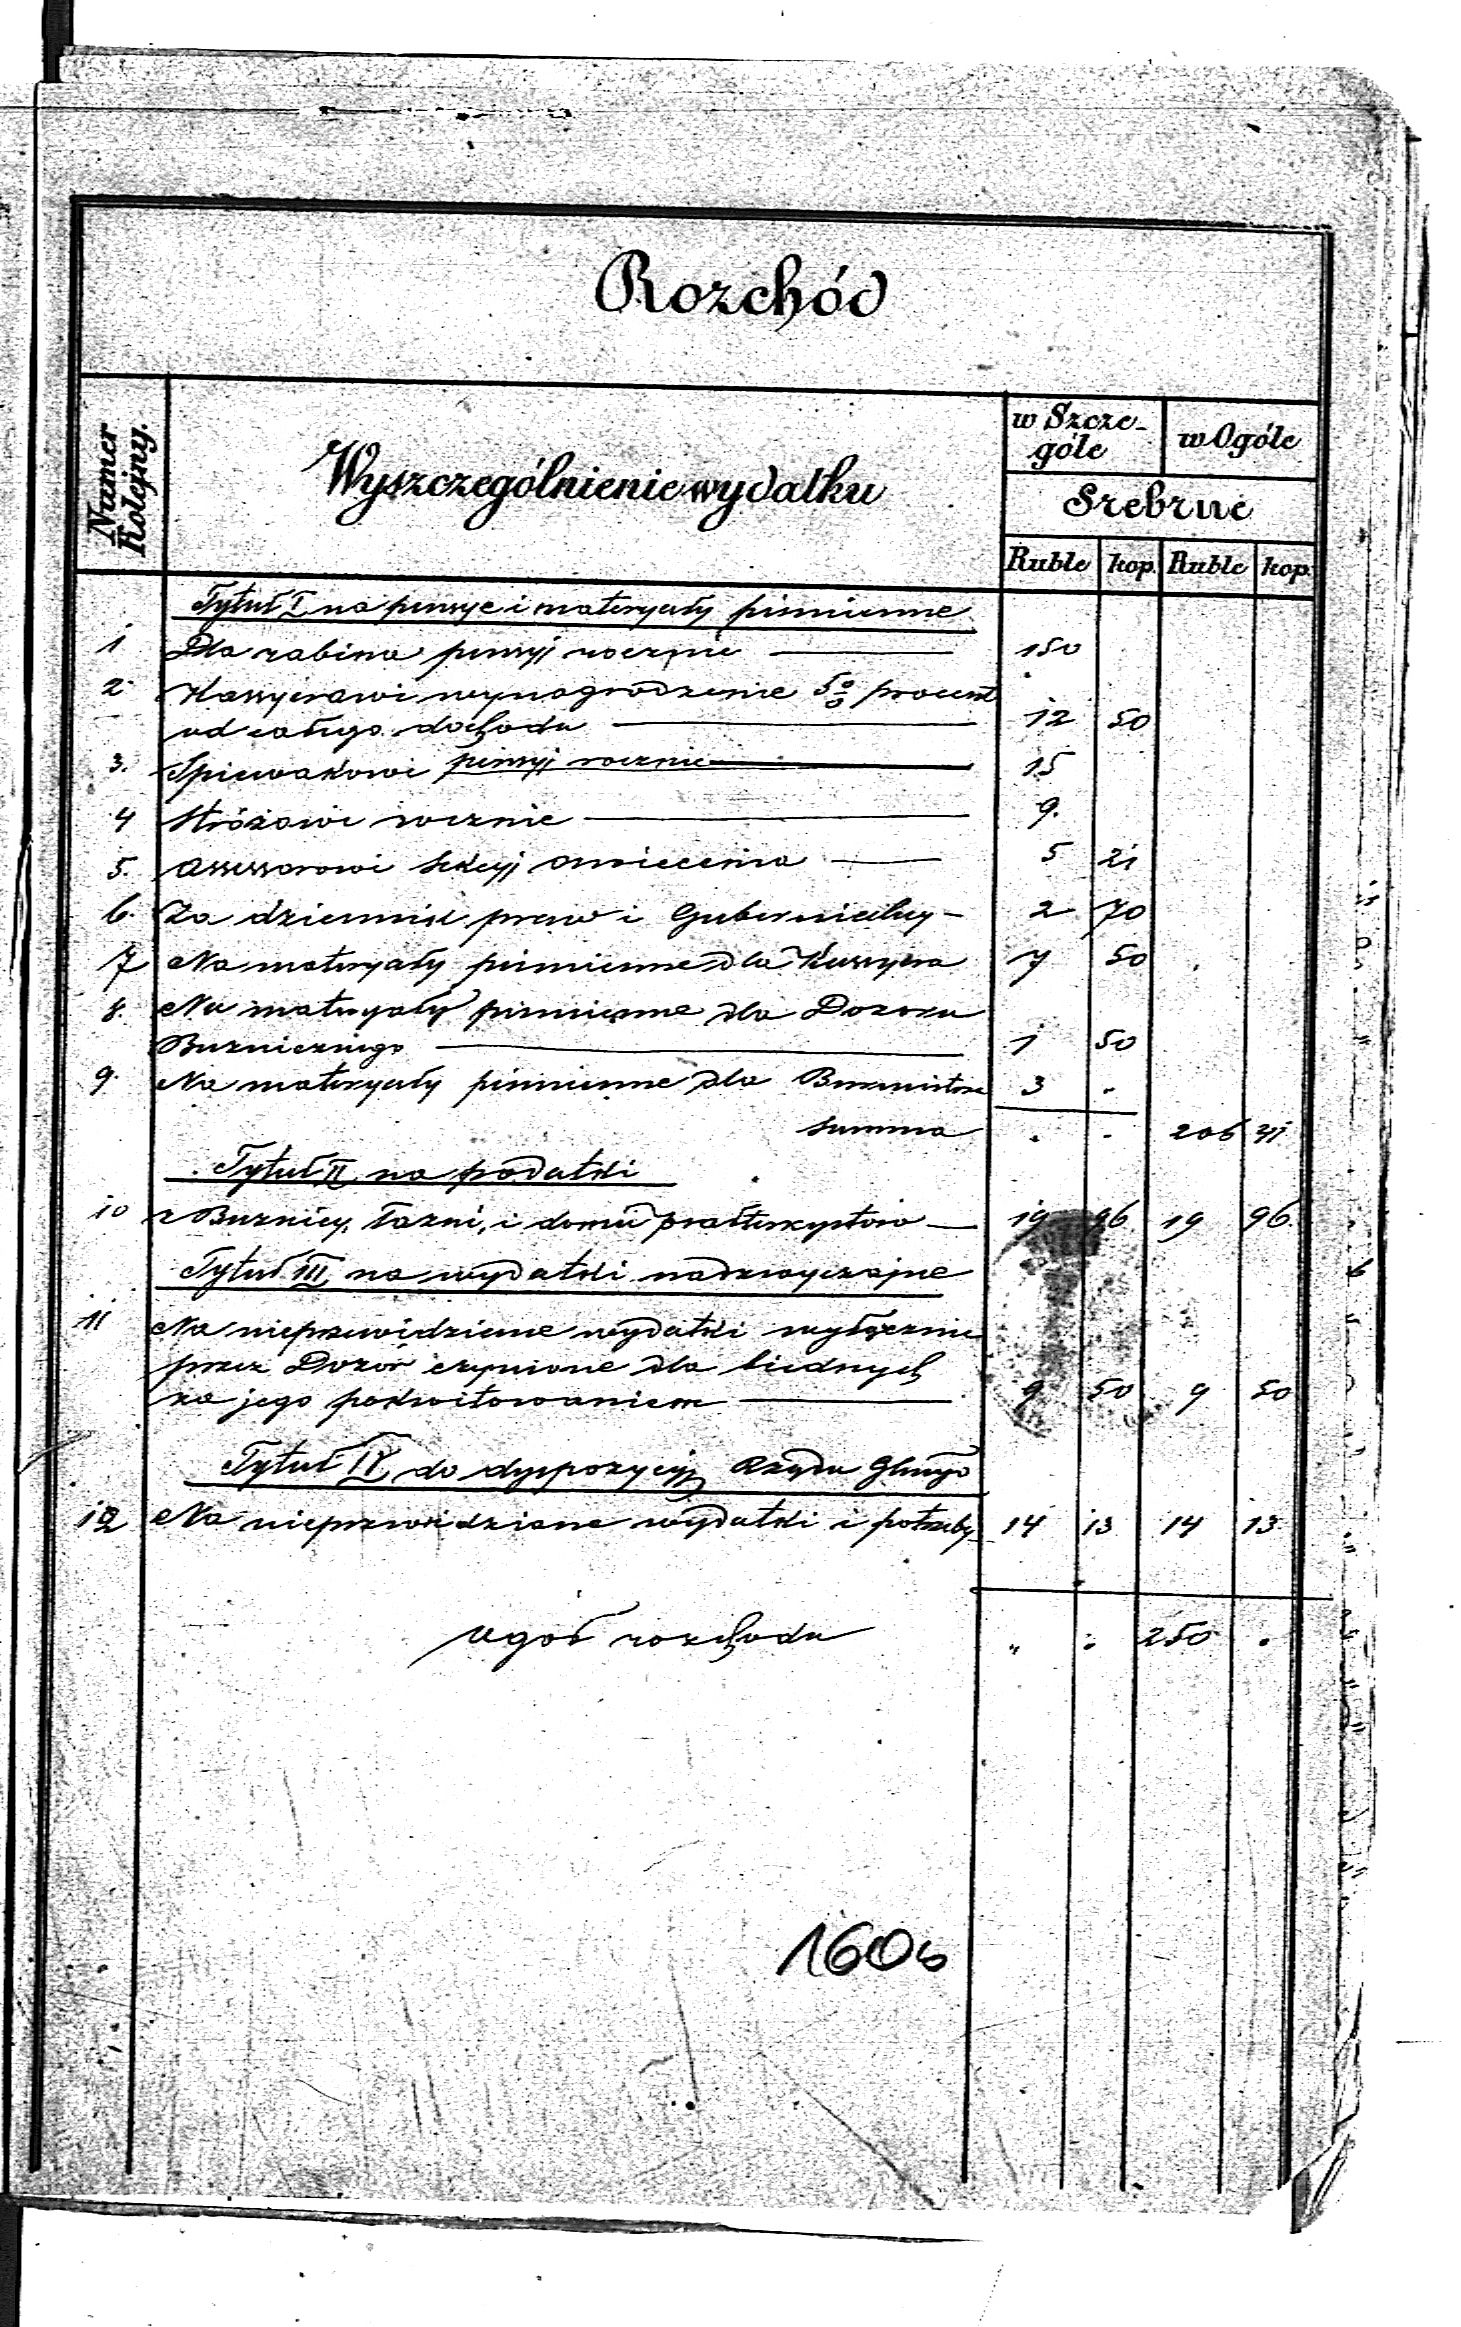 Rozchód
Numer Kolejny.
Wyszczególnienie wydatku
w Szcze-
góle
w Ogóle
Srebrne
Ruble kop. Ruble kop.
Tytuł I na pensye i materyały piśmienne
1 Dla rabina pensyj rocznie 150
2 Kassyerowi wynagrodzenie 5% procent
od całego dochodu 12 50
3. Śpiewakowi pensyj rocznie 15
4 Stróżowi rocznie 9.
5. assessorowi Sekcyj 5 21
6. Za dziennik praw i Gubernialny - 2 70
7 Na materyały piśmienne dla Kassyera 7 50
8. Na materyały piśmienne dla Dozoru
Bużniczego 1 50
9. Na materyały piśmienne dla Burmistrza 3 .
Summa . . 206 41
Tytuł II na podatki
10 z Bużnicy, łaźni, i domu 19 96 19 96.
Tytuł III na wydatki nadzwyczajne
11 Na nieprzewidziane wydatki wyłącznie
przez Dozór czynione dla biednych
za jego pokwitowaniem 9 50 9 50
Tytuł IV do dyspozycyj Rządu Glnego
12 Na nieprzewidziane wydatki i potrzeby 14 13 14 13
Ogół rozchodu " . 250 .